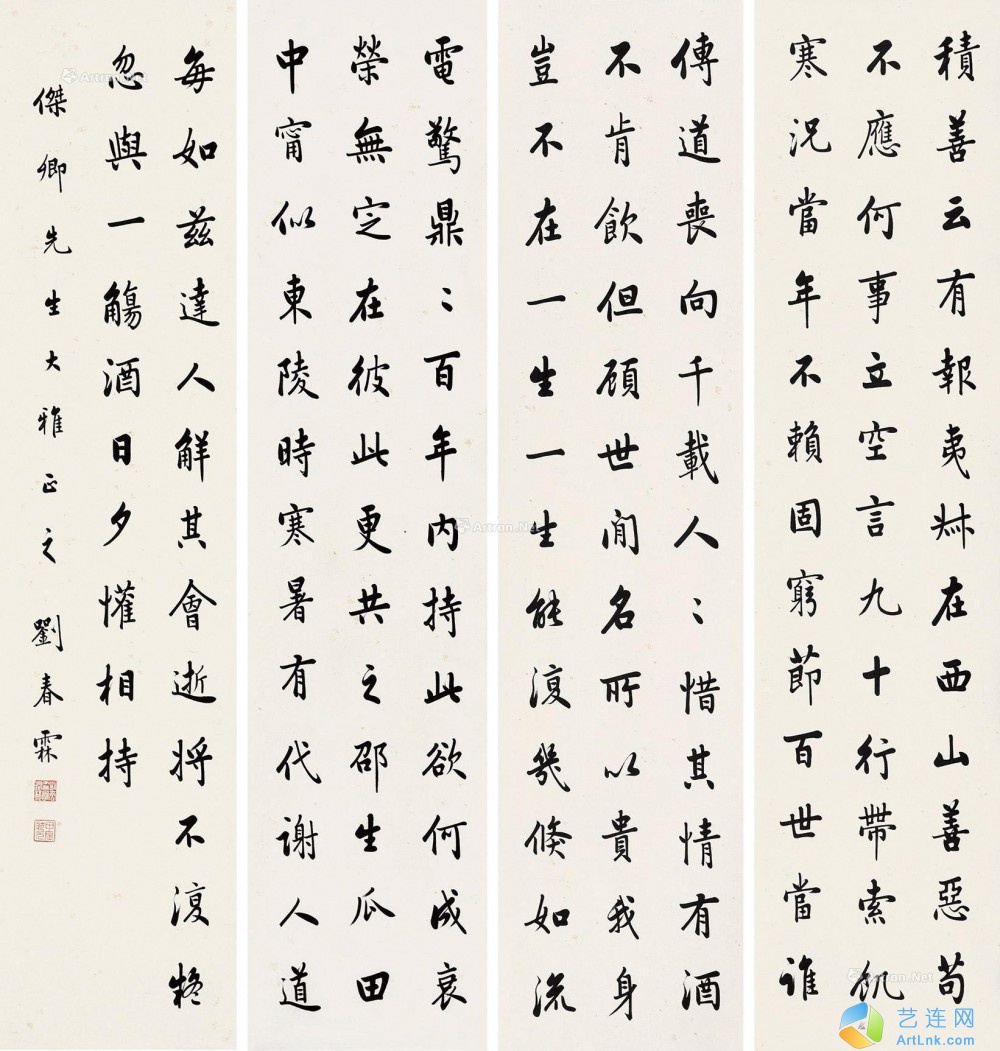 積善云有報夷叔在西山善惡苟
不應何事立空言九十行帶索飢
寒況當年不賴固窮節百世當誰
傳道喪向千載人〻惜其情有酒
不肯飲但顧世間名所以貴我身
豈不在一生一生能復幾倏如流
電驚鼎〻百年内持此欲何成衰
榮無定在彼此更共之邵生瓜田
中甯似東陵時寒暑有代謝人道
每如茲達人解其會逝將不復疑
忽與一觴酒日夕懽相持
傑卿先生大雅正之 劉春霖
Artron.Net
Artron.Net
Artron.Net
艺连网
ArtLnk.com